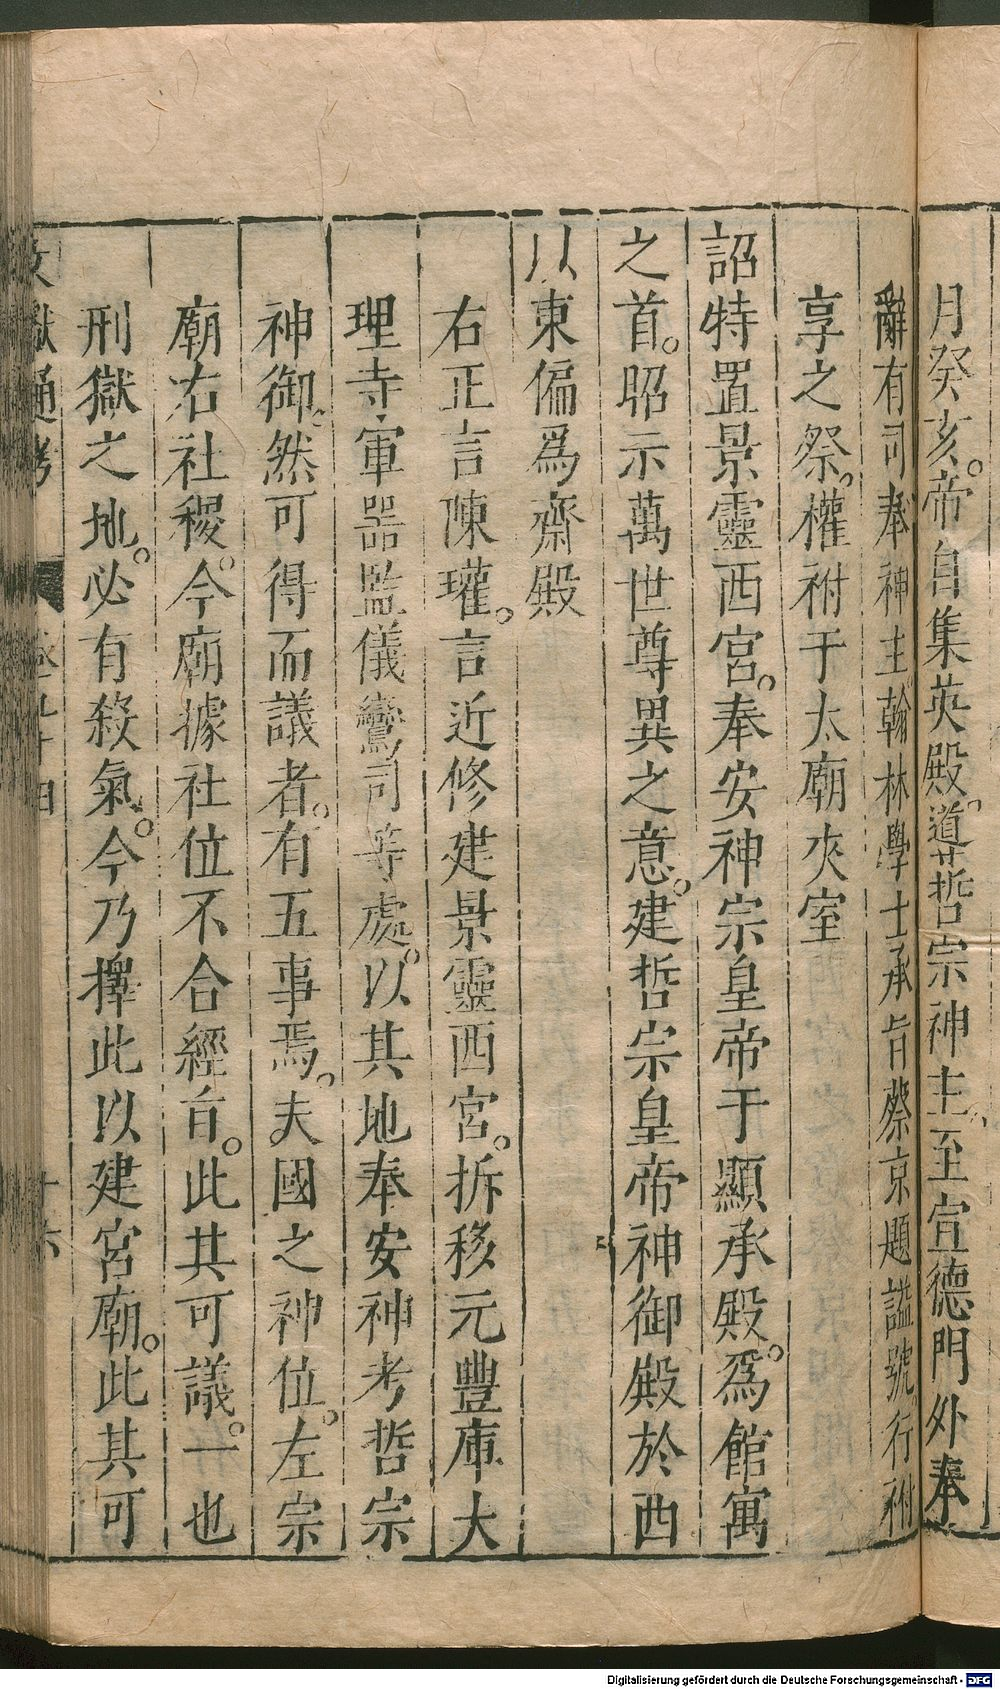 月癸亥。帝自集英殿。道哲宗神主、至宣德門外奉
辭有司奉神主翰林學士承旨蔡京題謚號、行祔
享之祭。權祔于太廟夾室
詔特置景靈西宮。奉安神宗皇帝于顯承殿。爲館寓
之首。昭示萬世尊異之意。建哲宗皇帝神御殿於西
以東偏爲齋殿
右正言陳瓘。言近修建景靈西宮。拆移元豐庫大
理寺軍器監儀鸞司等處。以其地奉安神考哲宗
神御。然可得而議者。有五事焉。夫國之神位。左宗
廟右社稷。今廟據社位不合經旨。此其可議。一也
刑獄之地。必有殺氣。今乃擇此以建宮廟。此其可
文獻通考 卷九十四 十六
Digitalisierung gefördert durch die Deutsche Forschungsgemeinschaft - DFG